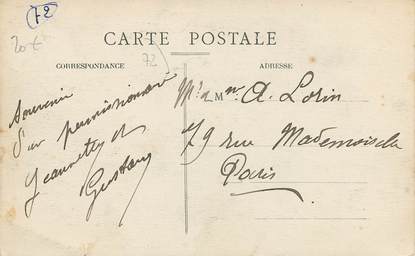 72
20 €
CARTE POSTALE
72
CORRESPONDANCE
ADRESSE
Souvenir
d'un permissionnaire
Jeannette et
Gustave
Mr & Mme A. Lorin
79 rue Mademoiselle
Paris